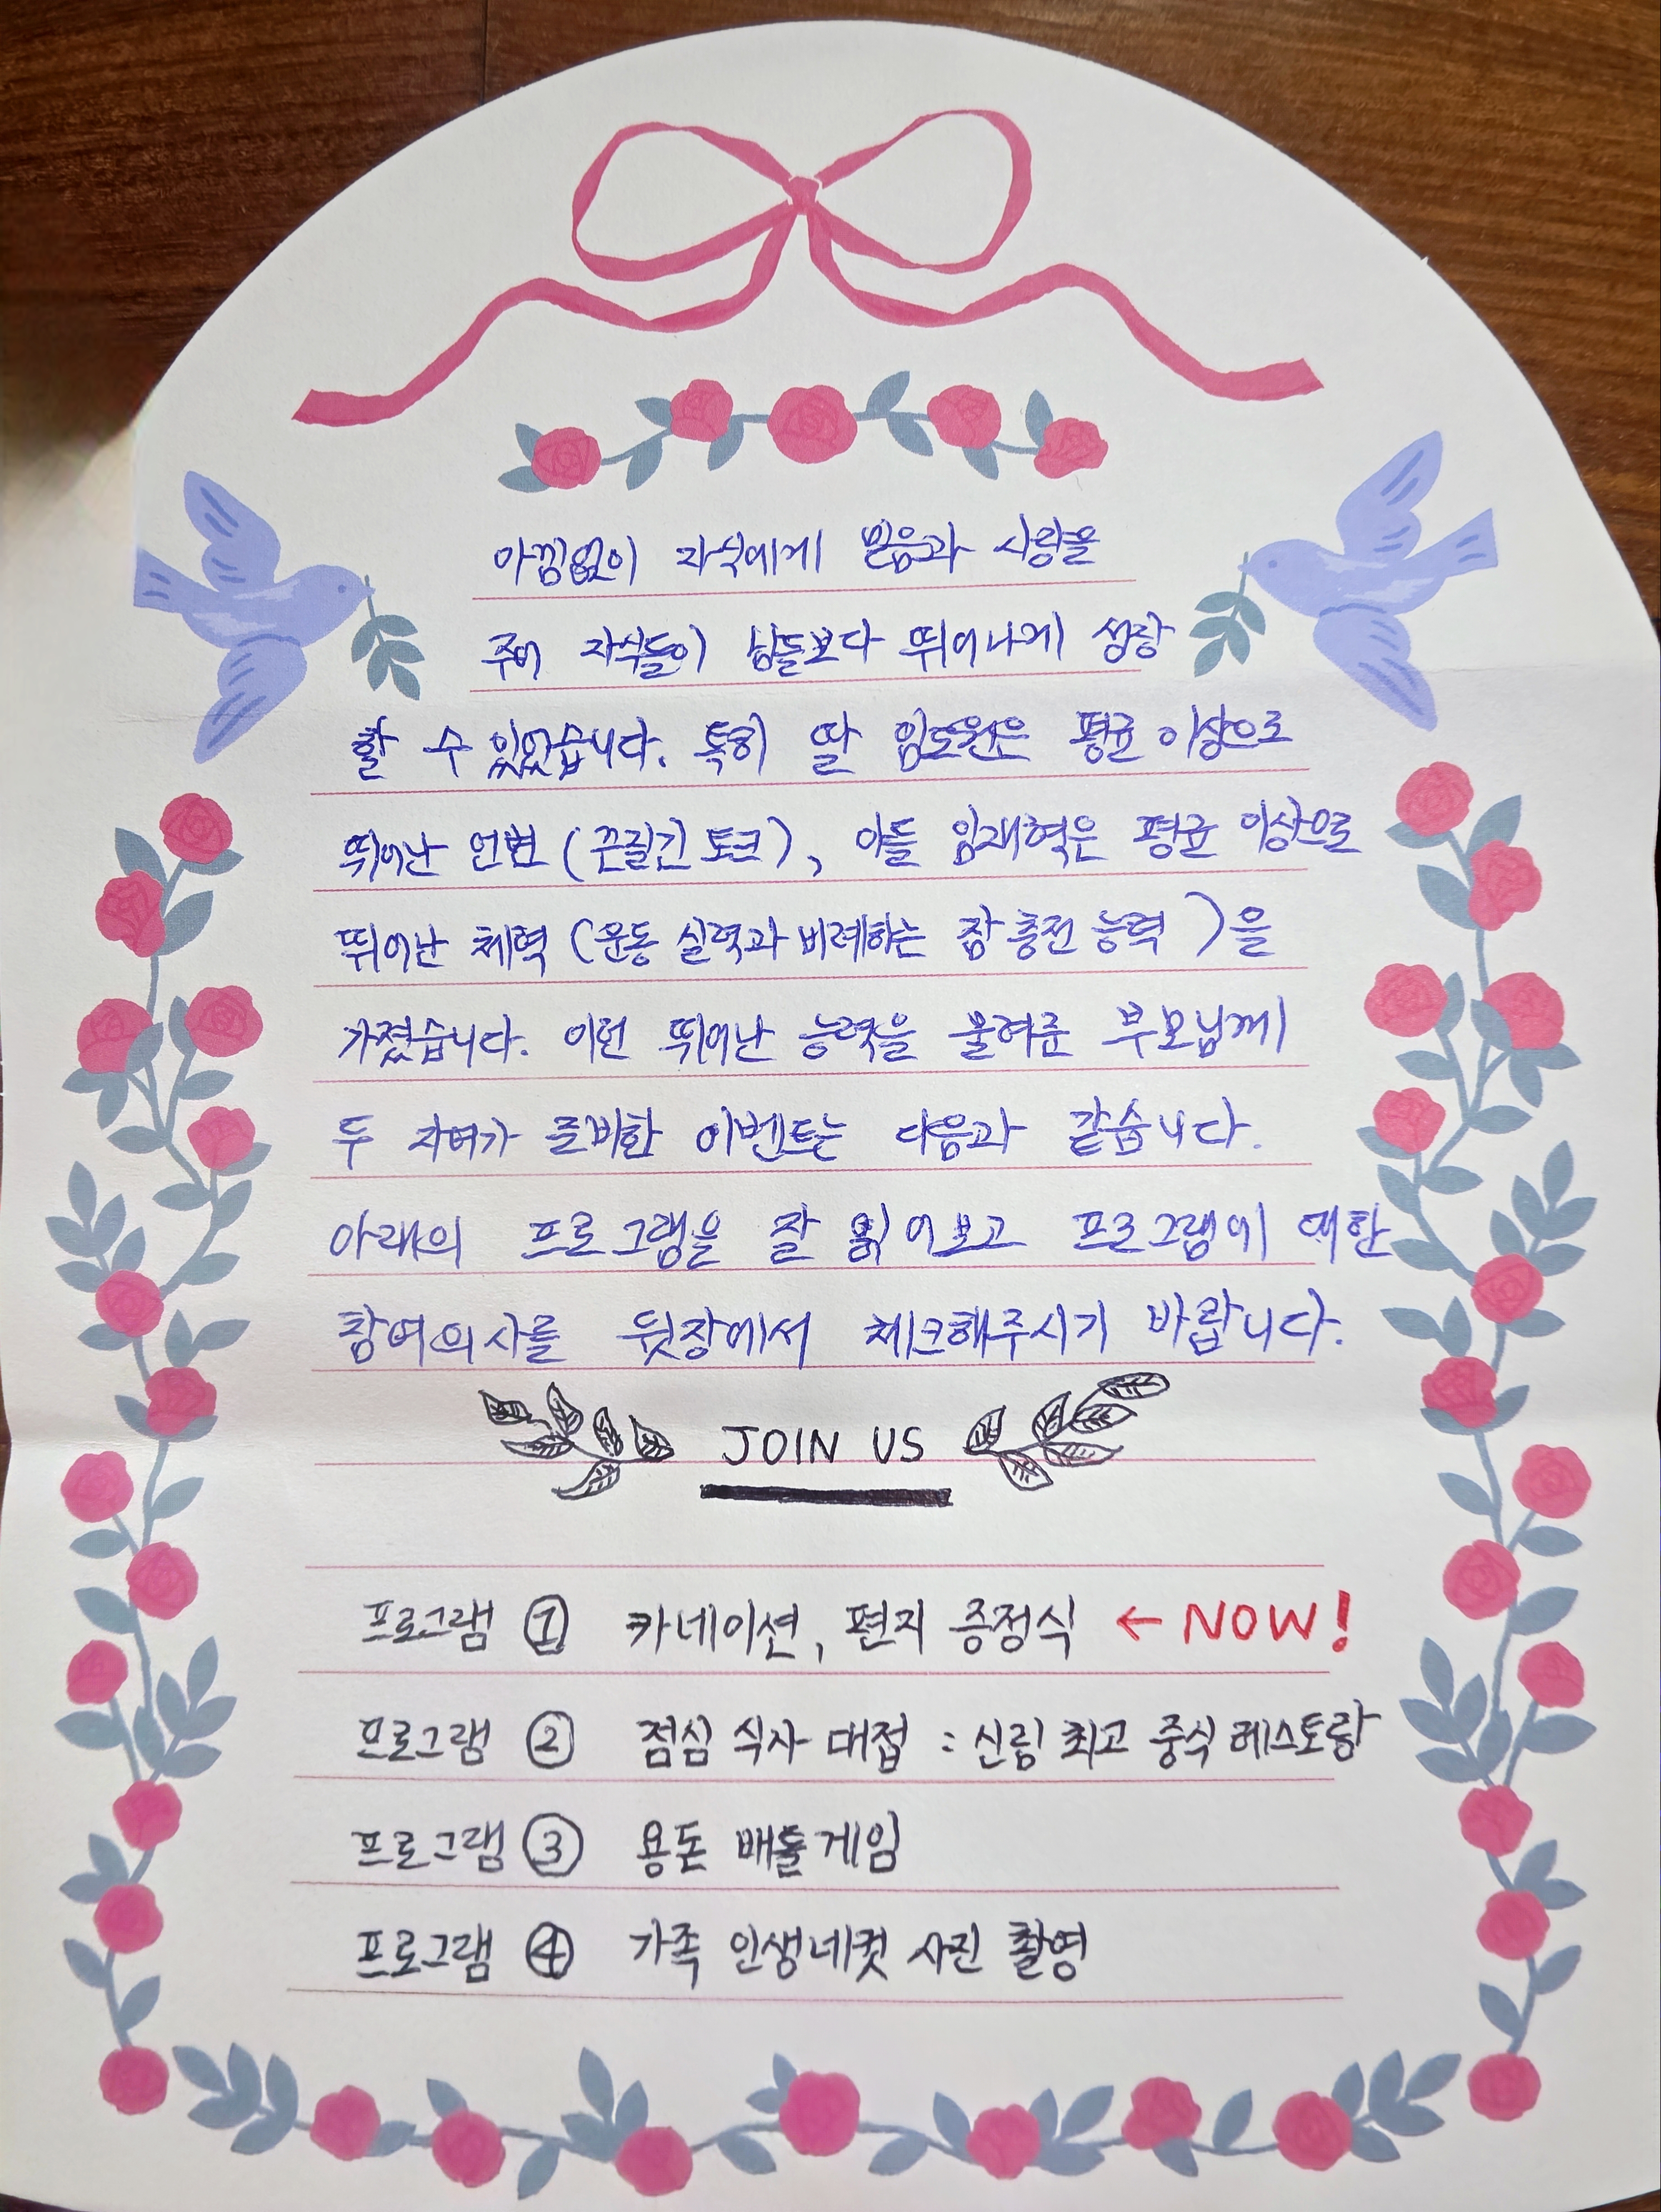 아낌없이 자식에게 믿음과 사랑을
주어 자식들이 남들보다 뛰어나게 성장
할 수 있었습니다. 특히 딸 임도원은 평균 이상으로
뛰어난 언변 (끈질긴 토크), 아들 임재혁은 평균 이상으로
뛰어난 체력 (운동 실력과 비례하는 잠 충전 능력)을
가졌습니다. 이런 뛰어난 능력을 물려준 부모님께
두 자녀가 준비한 이벤트는 다음과 같습니다.
아래의 프로그램을 잘 읽어보고 프로그램에 대한
참여의사를 뒷장에서 체크해주시기 바랍니다.
JOIN US
프로그램 ① 카네이션, 편지 증정식 ← NOW!
프로그램 ② 점심 식사 대접 : 신림 최고 중식 레스토랑
프로그램 ③ 용돈 배틀게임
프로그램 ④ 가족 인생네컷 사진 촬영